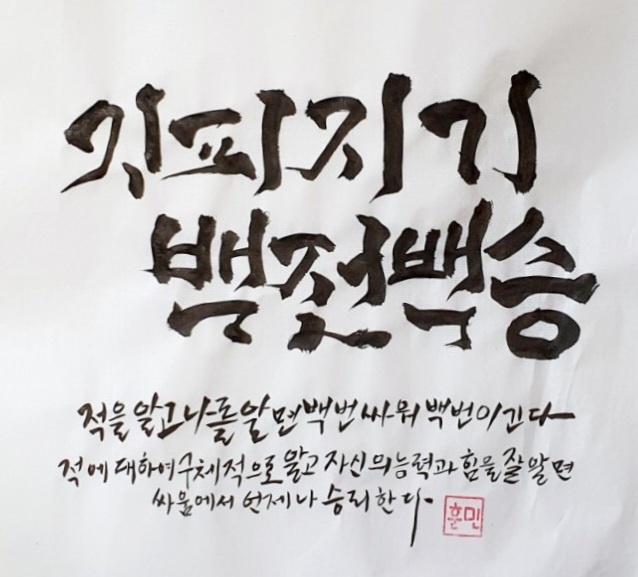 지피지기
백전백승
적을 알고 나를 알면 백번 싸워 백번 이긴다
적에 대하여 구체적으로 알고 자신의 능력과 힘을 잘 알면
싸움에서 언제나 승리한다
훈민